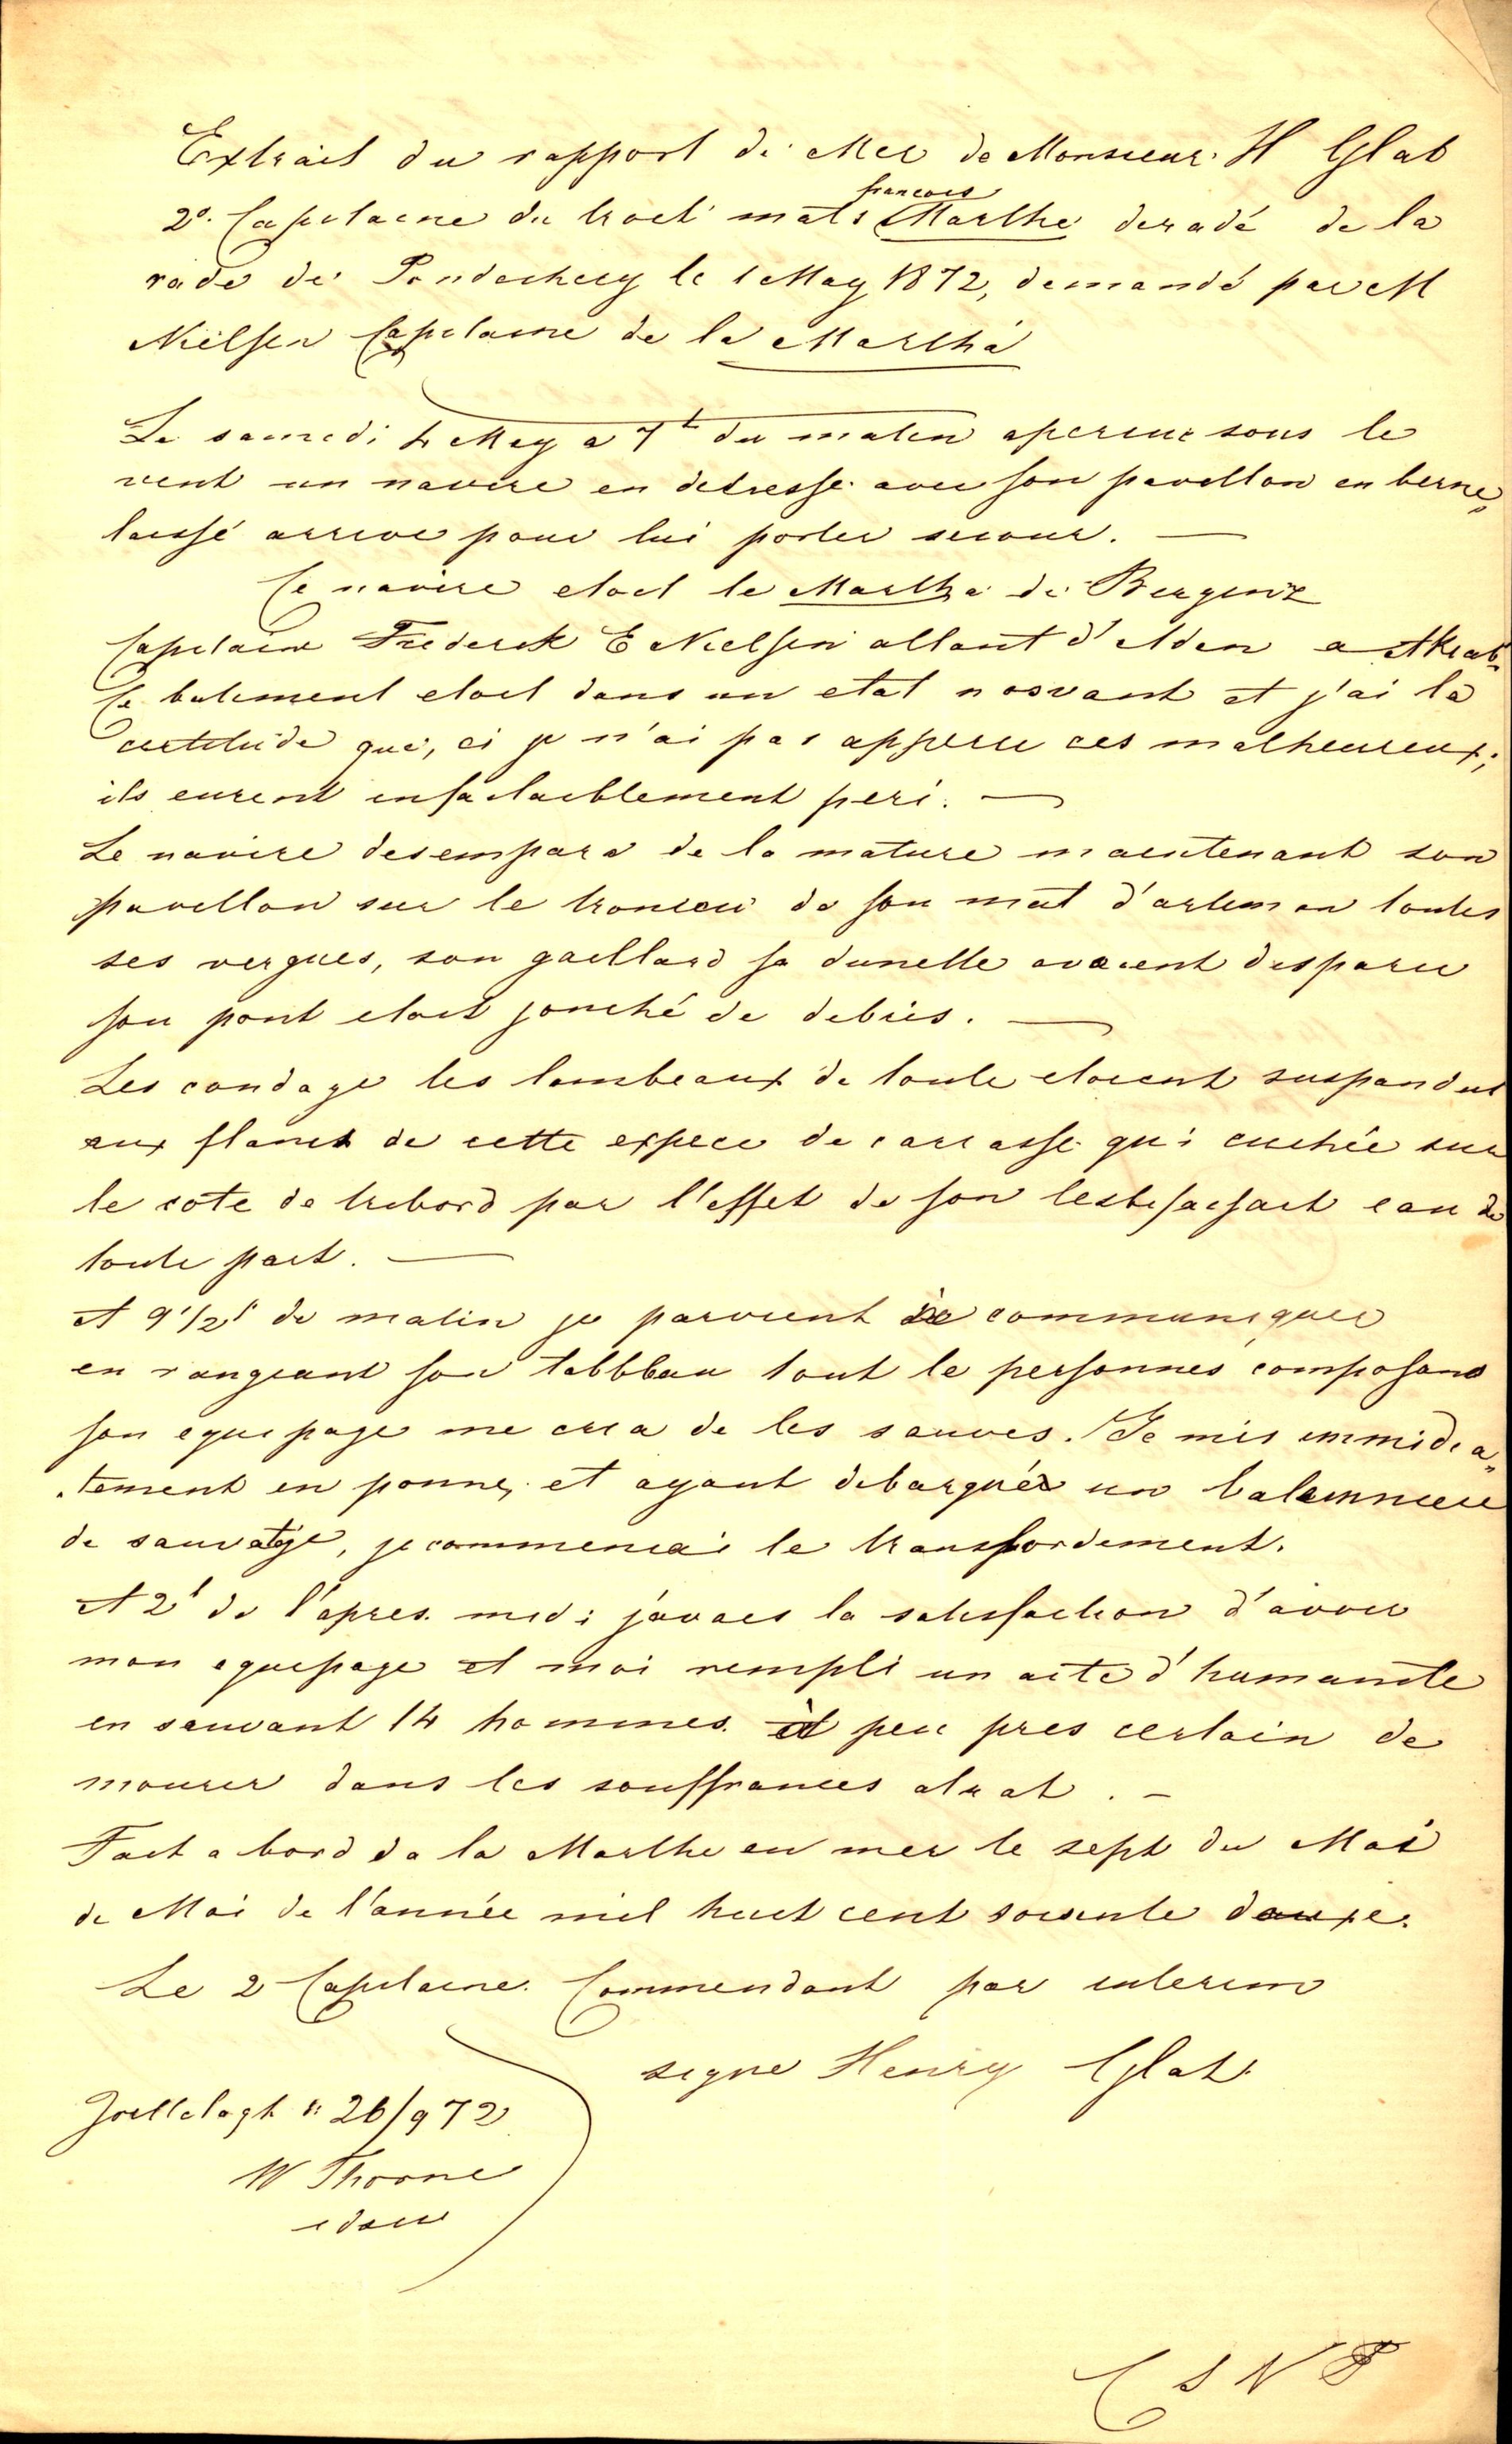 Extrait du rapport de Mer de Monsieur H Glat
2e. Capitaine du trois mats francais Marthe deradé de la
rade de Pondechery le 1 May 1872, demandé par M
Nielsen Capitaine de la Martha
Le samedi 4 May a 7h du maten apercue sous le
vent un navire en detresse avec son pavillon en berne,
laissé arrive pour lui porter secour. —
Ce navire etoit le Martha de Bergen
Capitaine Frederik E Nielsen allant d'Aden a Akiab
Ce batiment etoit dans un etat nosvant et j'ai la
certitude que, ci je n'ai pas apperu ces malheureux;
ils eurent infailaiblement peri. —
Le navire desempara de la mature maintenant son
pavillon sur le tronceu de son mat d'artemon toutes
ses vergues, son gaillard sa dunette avaient disparu
son pont etoit jonché de debris. —
Les condage les lambeaux de toule etoient suspandus
aux flancs de cette espece de carcasse qui cuchée sur
le cote de tribord par l'effet de son lest faisait eau de
toute part. —
A 9 1/2 h de matin je parvient de communiquer
en rangeant son tabbbau tout le personnes composans
son equipage me cria de les sauves. Je mis immidia„
„tement en panne, et ayant debarquée un baleinniere
de sauvatge, je commencai le transfordement.
A 2h de l'apres. midi j'avais la satisfaction d'avoir
mon equipage et moi rempli un acte d'humanite
en sauvant 14 hommes à peu pres certain de
mourir dans les souffrances . —
Fait a bord de la Marthe en mer le sept du Mai
de Mai de l'année mil huit cent soixante douxe.
Le 2 Capitaine. Commendant par interim
signe Henry Glat
26/9 72
W Thorne
C S N F